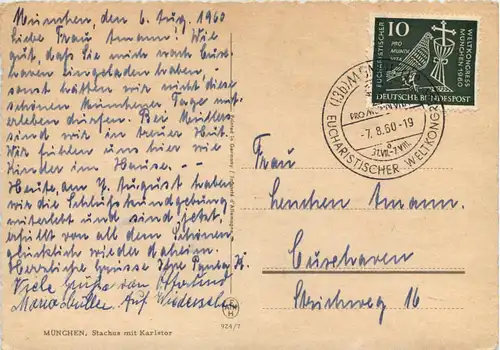 München, den 6. Aug. 1960
Liebe Frau Amann! Wie
gut, daß Sie mich nach Cux-
haven eingeladen haben,
sonst hätten wir nicht diese
schönen Münchener Tage mit-
erleben dürfen. Bei Müllers
sind wir in treuer Hut.
Wir fühlen uns hier wie
Kinder im Hause. --
Heute, den 7. August haben
wir die Schlußkundgebung
miterlebt und sind jetzt,
erfüllt von all dem Schönen,
glücklich wieder daheim.
Herzliche Grüsse Ihre
Viele Grüße von
Maria Müller. Auf Wiedersehen
MÜNCHEN, Stachus mit Karlstor
924/7
Printed in Germany
10
PRO
MUNDI
VITA
EUCHARISTISCHER
WELTKONGRESS
MÜNCHEN 1960
DEUTSCHE BUNDESPOST
(13b) MÜNCHEN
PRO MUNDI VITA
-7.8.60-19
31.VII.-7.VIII.
EUCHARISTISCHER WELTKONGRESS
Frau
Lenchen Amann.
Cuxhaven
Strichweg 16